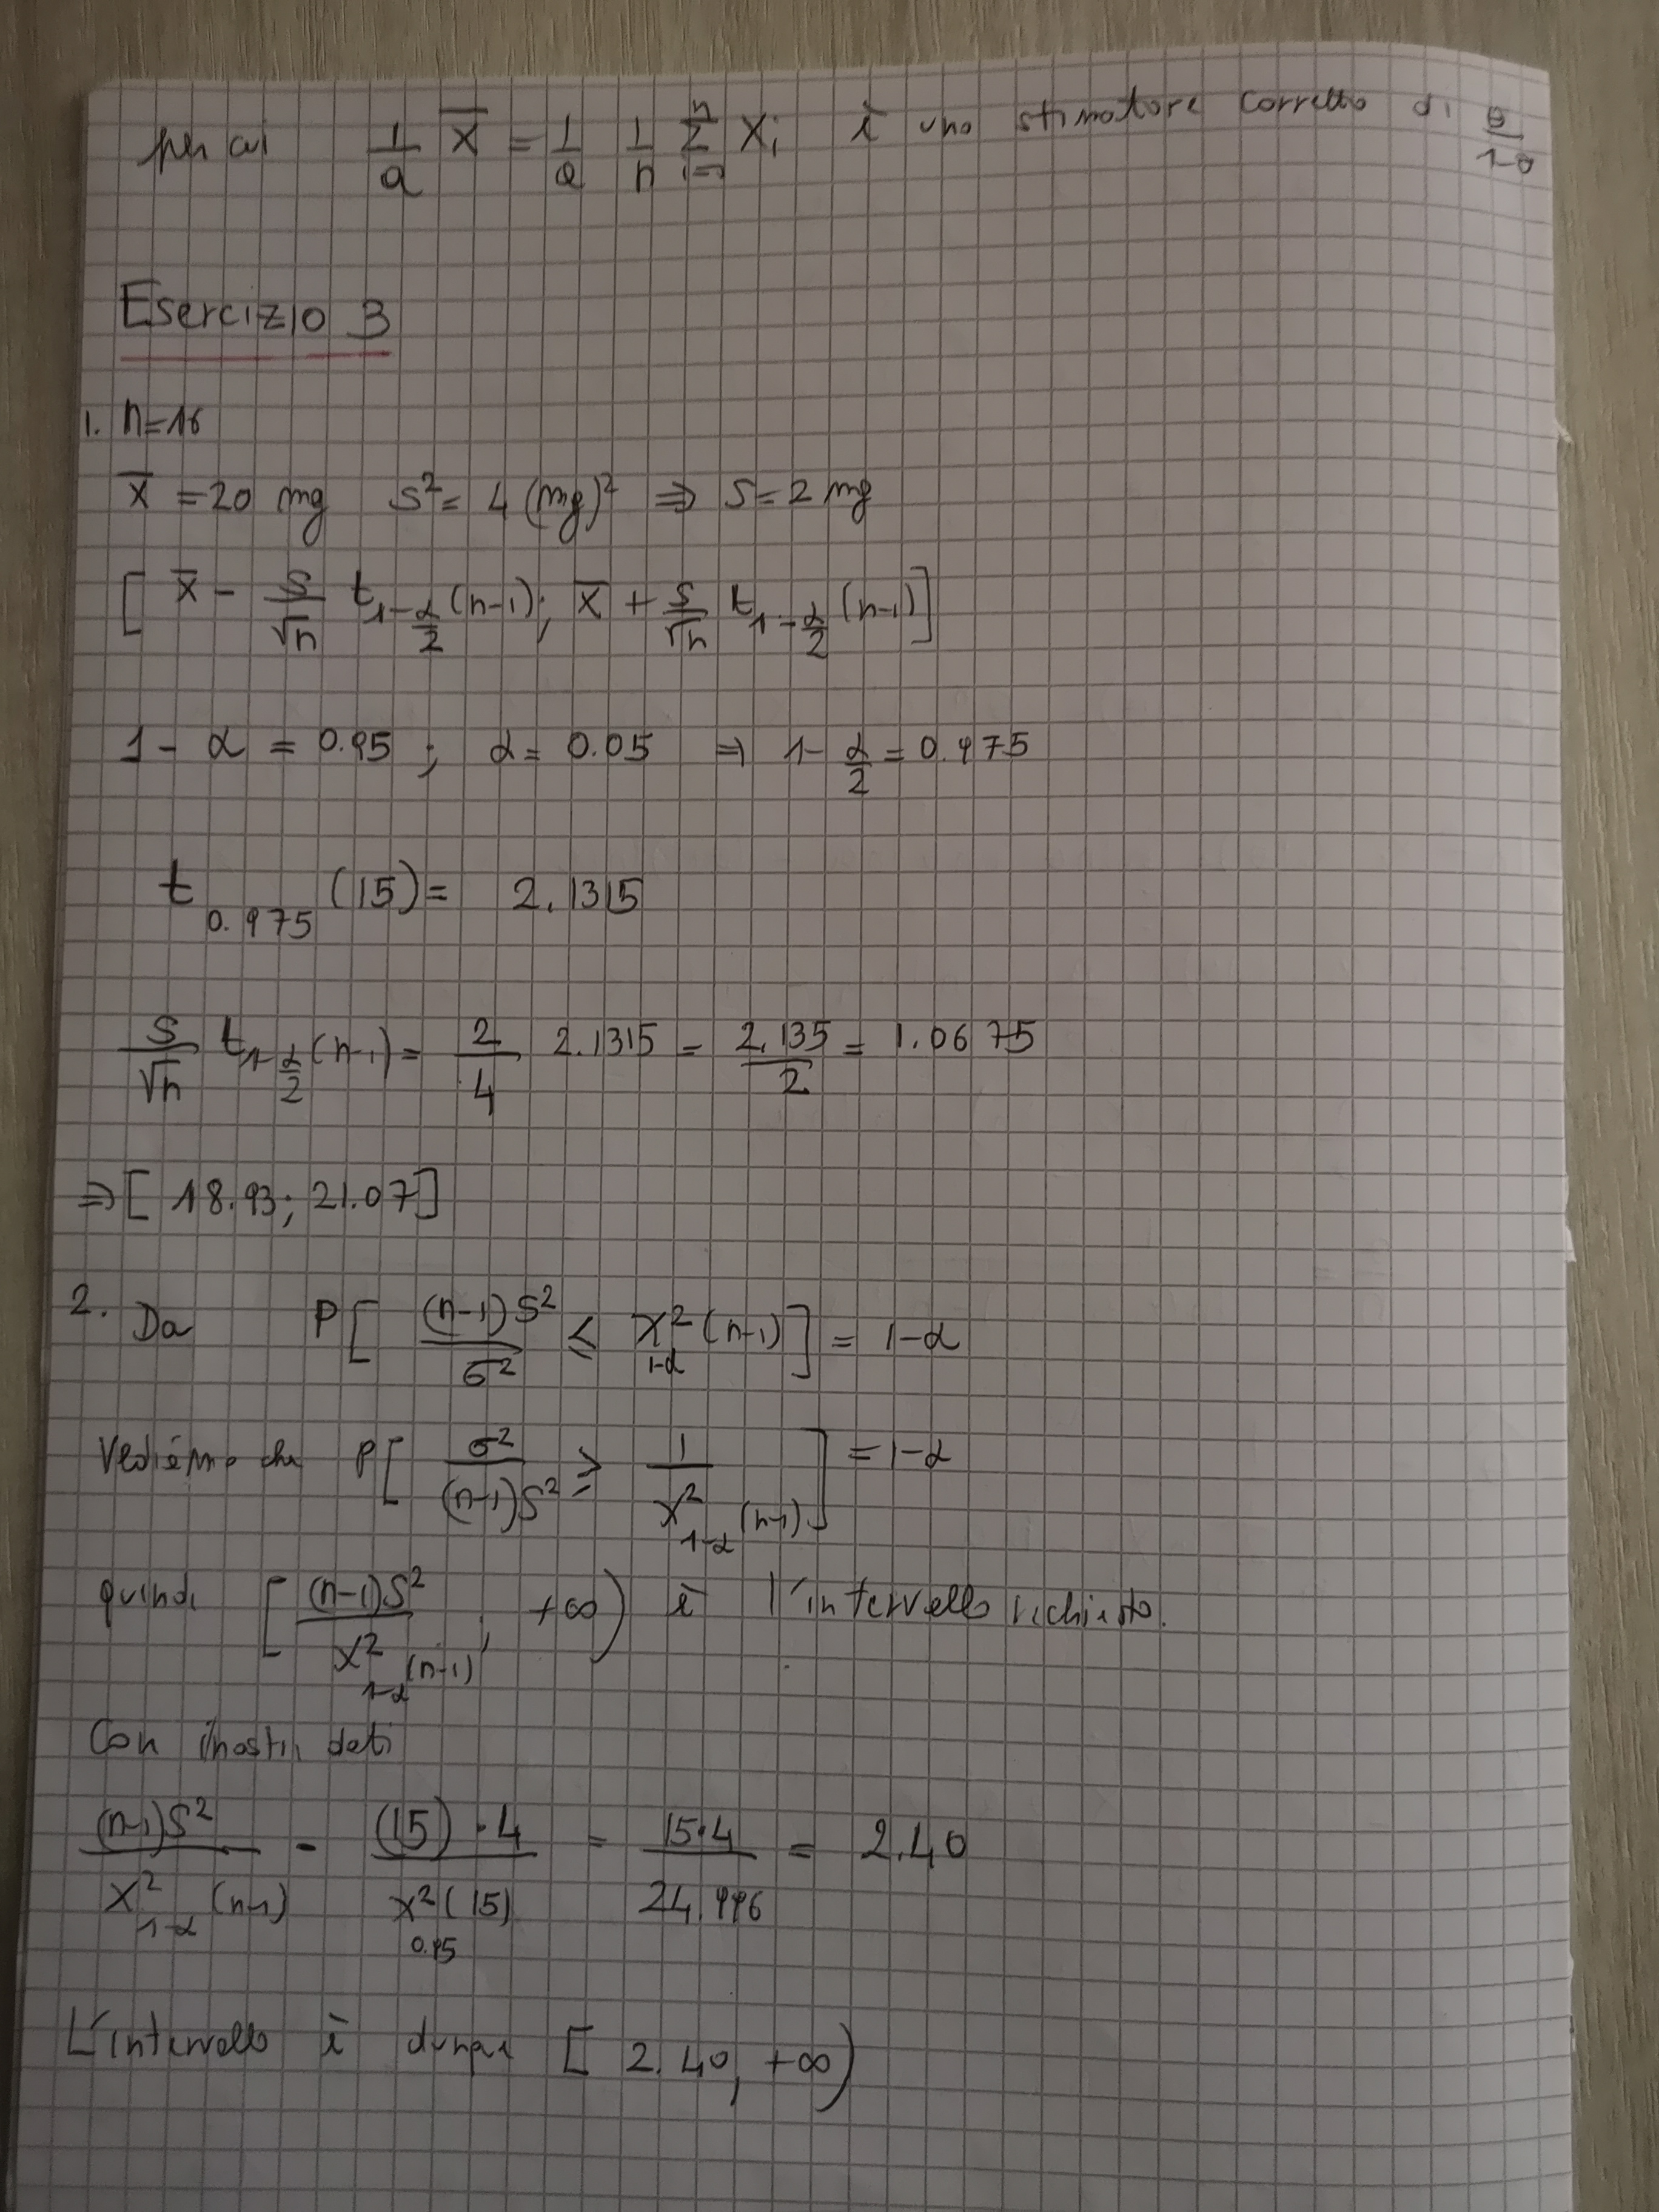 per cui 1/a X̄ = 1/a 1/n Σ_{i=1}^{n} X_i è uno stimatore corretto di θ/(1-θ)
Esercizio 3
1. n=16
x̄ = 20 mg s² = 4 (mg)² ⇒ s = 2 mg
[ x̄ - s/√n t_{1-α/2}(n-1); x̄ + s/√n t_{1-α/2}(n-1) ]
1 - α = 0.95 ; α = 0.05 ⇒ 1 - α/2 = 0.975
t_{0.975}(15) = 2.1315
s/√n t_{1-α/2}(n-1) = 2/4 2.1315 = 2.135/2 = 1.0675
⇒ [ 18.93; 21.07 ]
2. Da P[ (n-1)S²/σ² ≤ χ²_{1-α}(n-1) ] = 1-α
Vediamo che P[ σ²/((n-1)S²) ≥ 1/χ²_{1-α}(n-1) ] = 1-α
quindi [ (n-1)S²/χ²_{1-α}(n-1), +∞ ) è l'intervallo richiesto.
Con i nostri dati
(n-1)S²/χ²_{1-α}(n-1) = (15)·4/χ²_{0.95}(15) = 15·4/24.996 = 2.40
L'intervallo è dunque [ 2.40, +∞ )